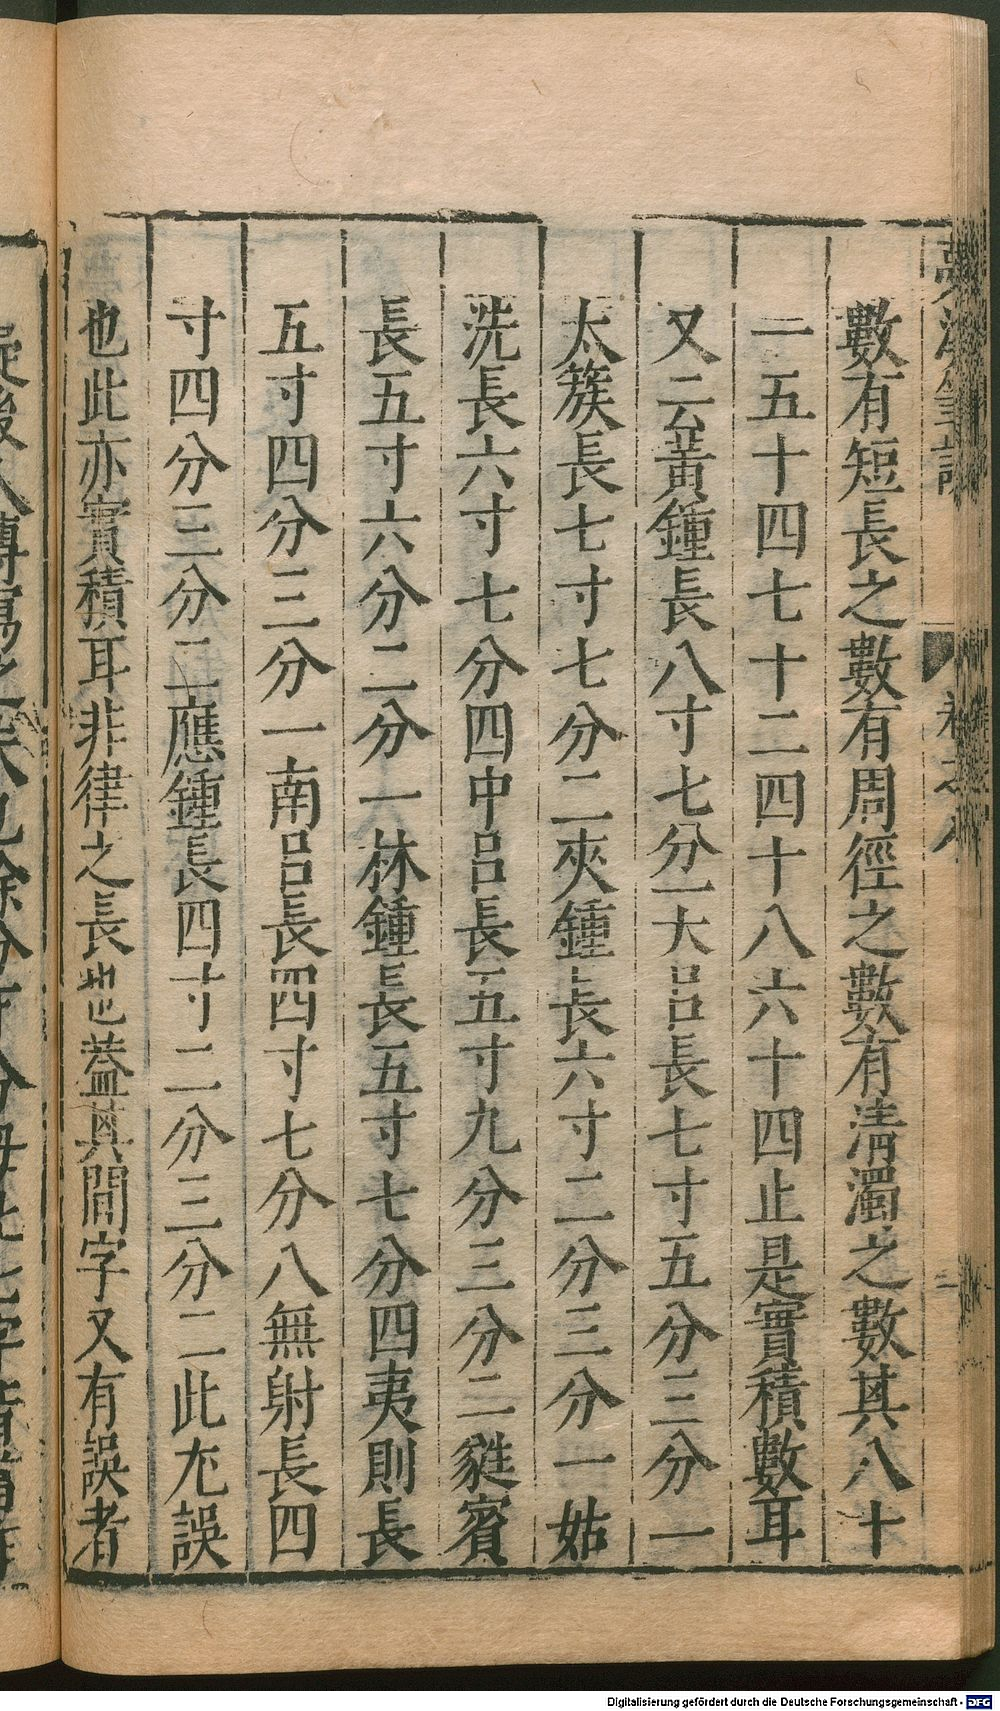 數有短長之數有周徑之數有清濁之數其八十
一五十四七十二四十八六十四止是實積數耳
又云黃鍾長八寸七分一大呂長七寸五分三分一
太簇長七寸七分二夾鍾長六寸二分三分一姑
洗長六寸七分四中呂長五寸九分三分二蕤賓
長五寸六分二分一林鍾長五寸七分四夷則長
五寸四分三分一南呂長四寸七分八無射長四
寸四分三分二應鍾長四寸二分三分二此尤誤
也此亦實積耳非律之長也蓋其間字又有誤者
Digitalisierung gefördert durch die Deutsche Forschungsgemeinschaft - DFG